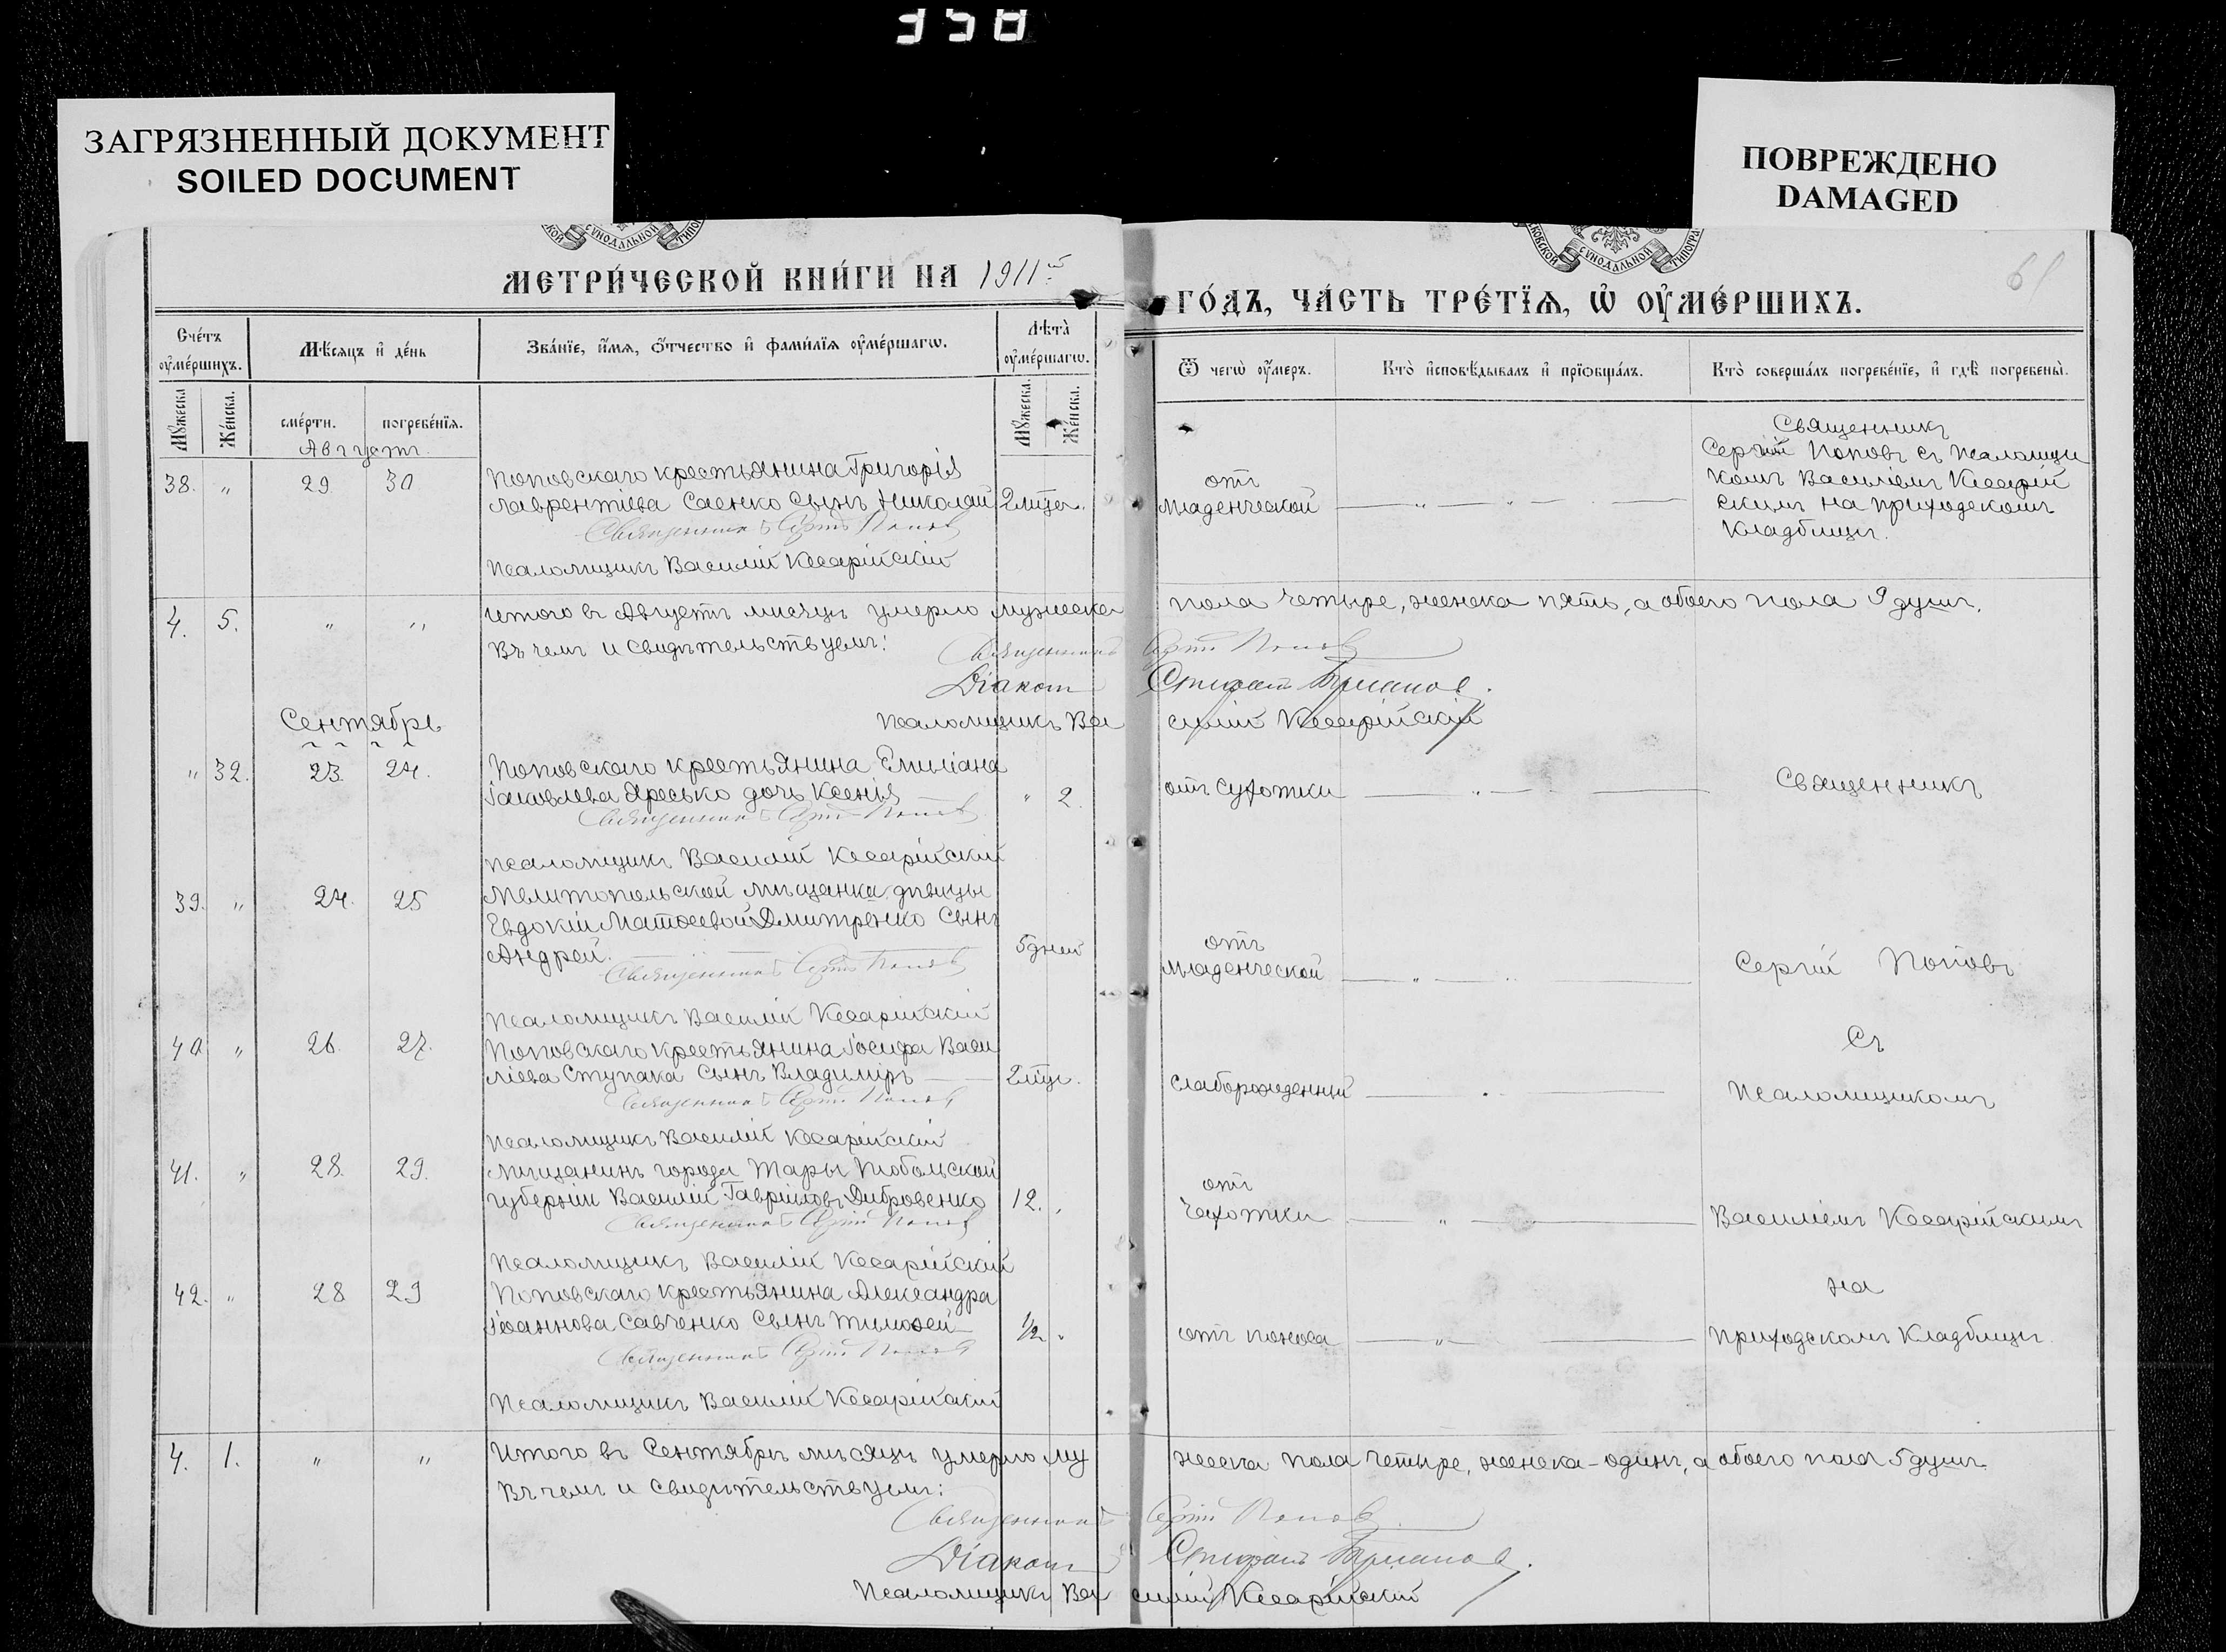 358
ЗАГРЯЗНЕННЫЙ ДОКУМЕНТ
SOILED DOCUMENT
ПОВРЕЖДЕНО
DAMAGED
СѴНОДАЛЬНОЙ
СѴНОДАЛЬНОЙ
МЕТРИ́ЧЕСКОЙ КНИ́ГИ НА 1911й
ГО́ДЪ, ЧА́СТЬ ТРЕ́ТЇѦ, Ѡ҆ ОУ҆МЕ́РШИХЪ.
61
Сче́тъ оу҆ме́ршихъ.
Мѣ́сѧцъ и҆ де́нь
Зва́нїе, и҆́мѧ, ѻ҆́тчество и҆ фами́лїѧ оу҆ме́ршагѡ.
Лѣта̀ оу҆ме́ршагѡ.
Ѿ чегѡ̀ оу҆́меръ.
Кто̀ и҆сповѣ́дывалъ и҆ прїѡбща́лъ.
Кто̀ соверша́лъ погребе́нїе, и҆ гдѣ̀ погребены̀.
Мꙋ́жеска
Же́нска.
сме́рти.
погребе́нїѧ.
Мꙋ́жеска.
Же́нска.
Августъ.
38. " 29. 30
Поповскаго крестьянина Григорія
Лаврентіева Саенко сынъ Николай 2 мѣс.
Священникъ Сергій Поповъ
Псаломщикъ Василій Кесарійскій
отъ
младенческой
Священникъ
Сергій Поповъ съ Псаломщи
комъ Василіемъ Кесарій
скимъ на приходскомъ
кладбищѣ.
4. 5. " " Итого въ Августѣ мѣсяцѣ умерло мужеска пола четыре, женска пять, а обоего пола 9 душъ.
Въ чемъ и свидѣтельствуемъ:
Священникъ Сергій Поповъ
Діаконъ
Псаломщикъ Василій Кесарійскій
Сентябрь
" 32. 23. 24.
Поповскаго крестьянина Емиліана
Іаковлева Яресько дочь Ксенія " 2.
Священникъ Сергій Поповъ
Псаломщикъ Василій Кесарійскій
отъ сухотки
Священникъ
39. " 24. 25
Мелитопольской мѣщанки дѣвицы
Евдокіи Матѳеевой Дмитренко сынъ
Андрей. 5 дней
Священникъ Сергій Поповъ
Псаломщикъ Василій Кесарійскій
отъ
младенческой
Сергій Поповъ
40 " 26. 27.
Поповскаго крестьянина Іосифа Васи
ліева Ступака сынъ Владиміръ 2 мѣс.
Священникъ Сергій Поповъ
Псаломщикъ Василій Кесарійскій
слаборожденный
Съ
Псаломщикомъ
41. " 28. 29.
Мѣщанинъ города Тары Тобольской
губерніи Василій Гавріиловъ Дибровенко 12.
Священникъ Сергій Поповъ
Псаломщикъ Василій Кесарійскій
отъ
чахотки
Василіемъ Кесарійскимъ
42. " 28 29
Поповскаго крестьянина Александра
Іоаннова Савченко сынъ Тимоѳей ½
Священникъ Сергій Поповъ
Псаломщикъ Василій Кесарійскій
отъ поноса
на
приходскомъ кладбищѣ.
4. 1. " " Итого въ Сентябрѣ мѣсяцѣ умерло мужеска пола четыре, женска - одинъ, а обоего пола 5 душъ.
Въ чемъ и свидѣтельствуемъ:
Священникъ Сергій Поповъ
Діаконъ
Псаломщикъ Василій Кесарійскій